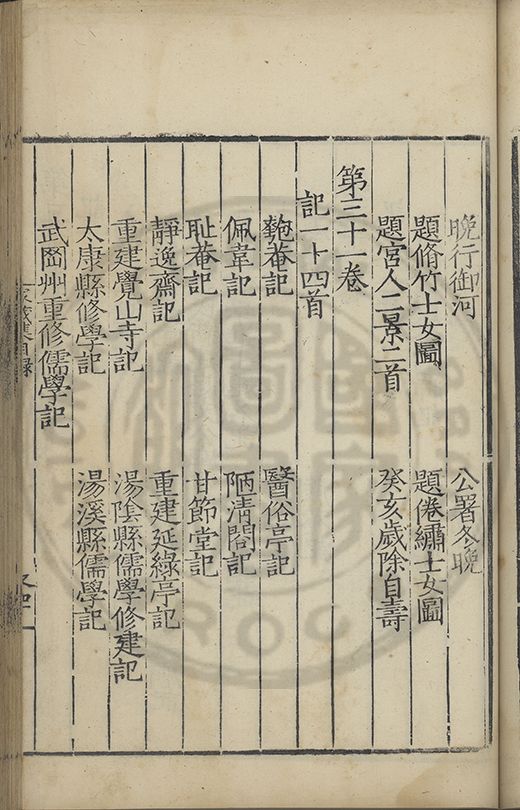 晚行御河　公署冬晚
題脩竹士女圖　題倦繡士女圖
題宮人二景二首　癸亥歲除自壽
第三十一卷
記一十四首
匏菴記　醫俗亭記
佩韋記　陋清閣記
耻菴記　甘節堂記
靜逸齋記　重建延綠亭記
重建覺山寺記　湯陰縣儒學修建記
太康縣修學記　湯溪縣儒學記
武岡州重修儒學記